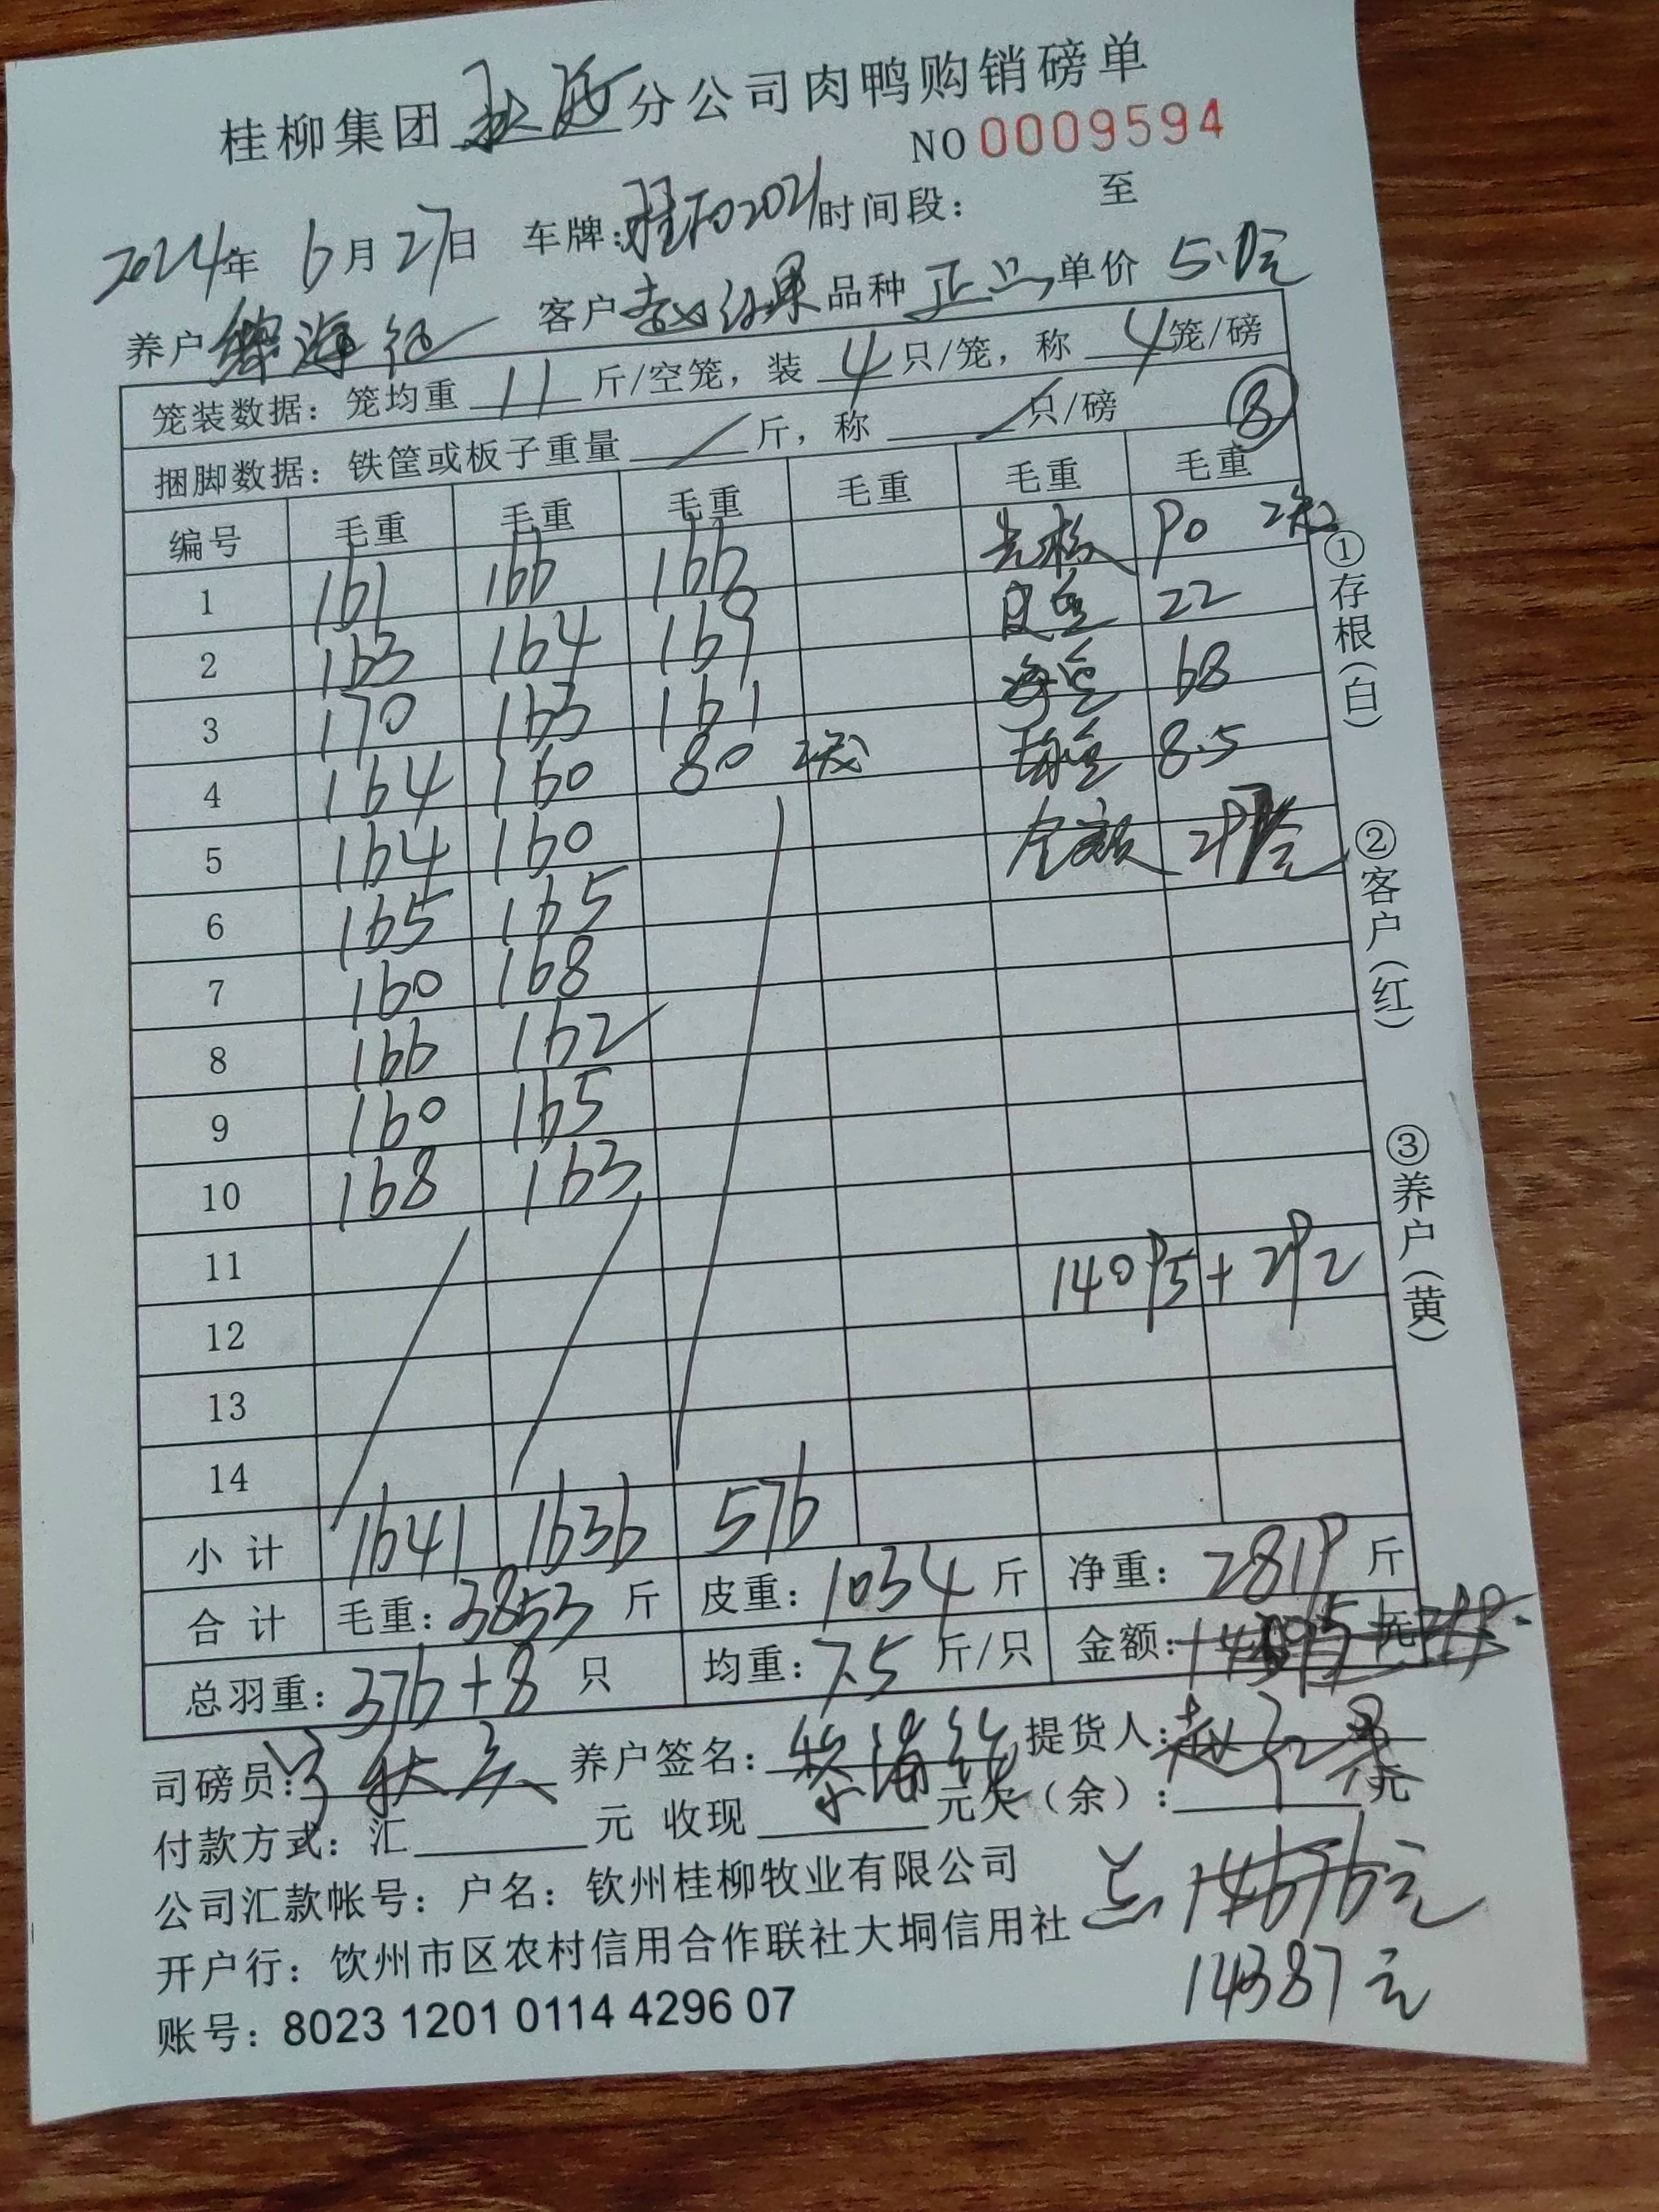 桂柳集团 分公司肉鸭购销磅单
NO 0009594
2024年 6月27日 车牌: 2021 时间段: 至
养户 海 客户 红果 品种 正品 单价 5.1元
笼装数据: 笼均重 11 斤/空笼, 装 4 只/笼, 称 4 笼/磅
捆脚数据: 铁筐或板子重量 / 斤, 称 / 只/磅 ⑧
编号 毛重 毛重 毛重 毛重 毛重 毛重
1 161 166 166 90
2 163 164 169 皮重 22
3 170 163 161 净重 68
4 164 160 80 均重 8.5
5 164 160 金额
6 165 165
7 160 168
8 166 162
9 160 165
10 168 163
11 14095+292
12
13
14
小计 1641 1636 576
合计 毛重: 3853 斤 皮重: 1034 斤 净重: 2819 斤
总羽重: 376+8 只 均重: 7.5 斤/只 金额: 元
司磅员: 养户签名: 提货人: 赵红果
付款方式: 汇 元 收现 元 欠(余): 元
公司汇款帐号: 户名: 钦州桂柳牧业有限公司
开户行: 钦州市区农村信用合作联社大垌信用社
账号: 8023 1201 0114 4296 07
总 14676元
14387元
①存根(白)
②客户(红)
③养户(黄)